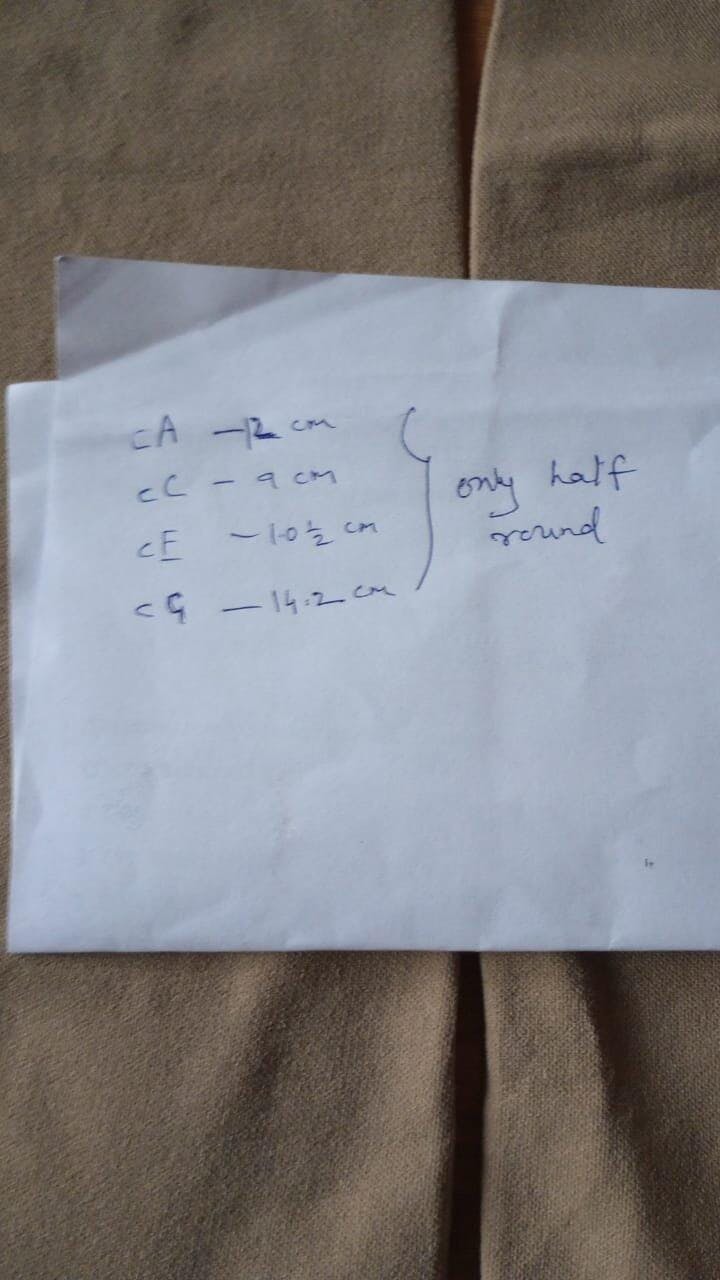 cA - 12 cm
cC - 9 cm
cE - 10 ½ cm
cG - 14.2 cm
only half
round